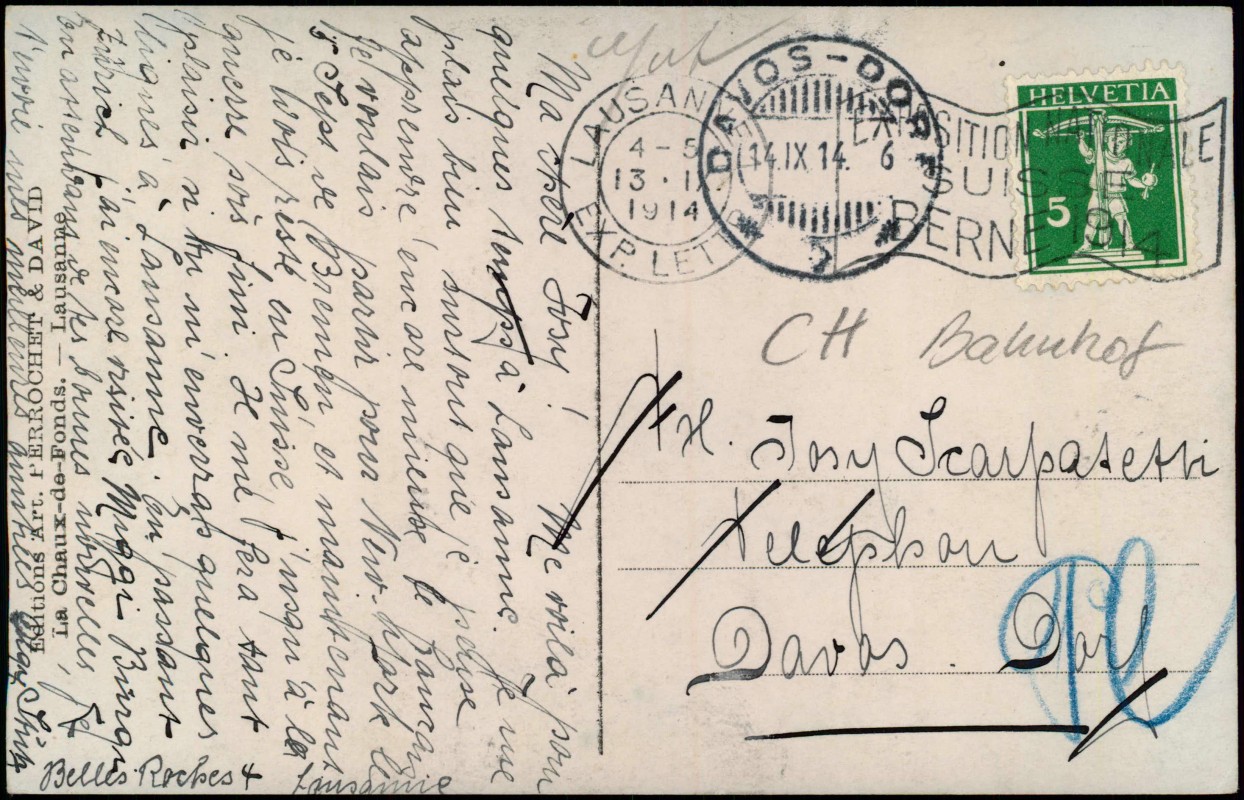 LAUSANNE
4-5
13.IX.
1914
EXP. LETTR.
DAVOS-DORF
14.IX 14. 6
EXPOSITION NATIONALE
SUISSE
BERNE 1914
HELVETIA
5
CH Bahnhof
H. Josy Scarpatetti
Telephon
Davos. Dorf
Ma chère Josy! Me voilà pour
quelques temps à Lausanne. Je me
plais bien surtout que je puisse
apprendre encore mieux le français
Je voulais partir pour New-York le
13 Sept de Bremen et maintenant
je dois resté en Suisse, jusqu'à la
guerre soit fini. Il me fera tant
plaisir si tu m'enverras quelques
lignes à Lausanne. En passant
Zürich j'ai encore visitée Migqi Bürger
En attendant de tes bonnes nouvelles, je
t'envoi mes meilleures amitiés
Belles-Roches 4 Lausanne
Editions Art. PERROCHET & DAVID
La Chaux-de-Fonds. — Lausanne